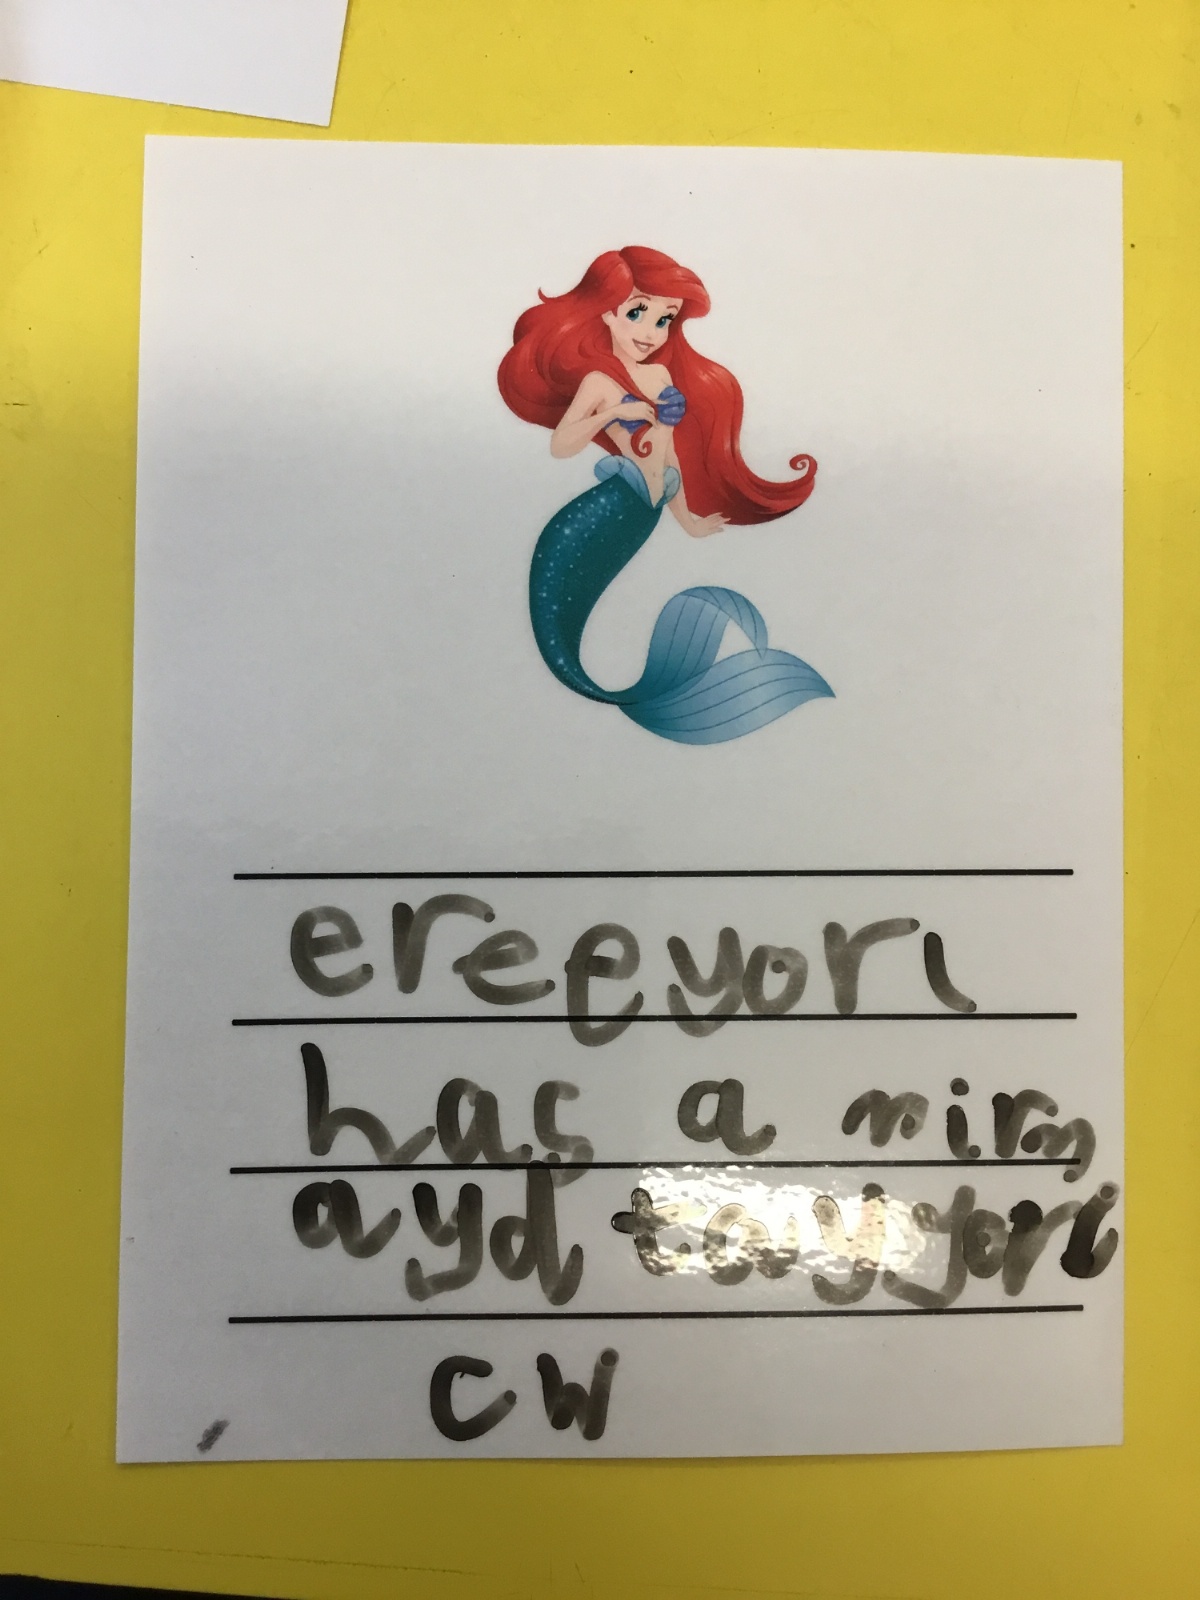 ereeyori
has a mirm
ayd tayyori
cw